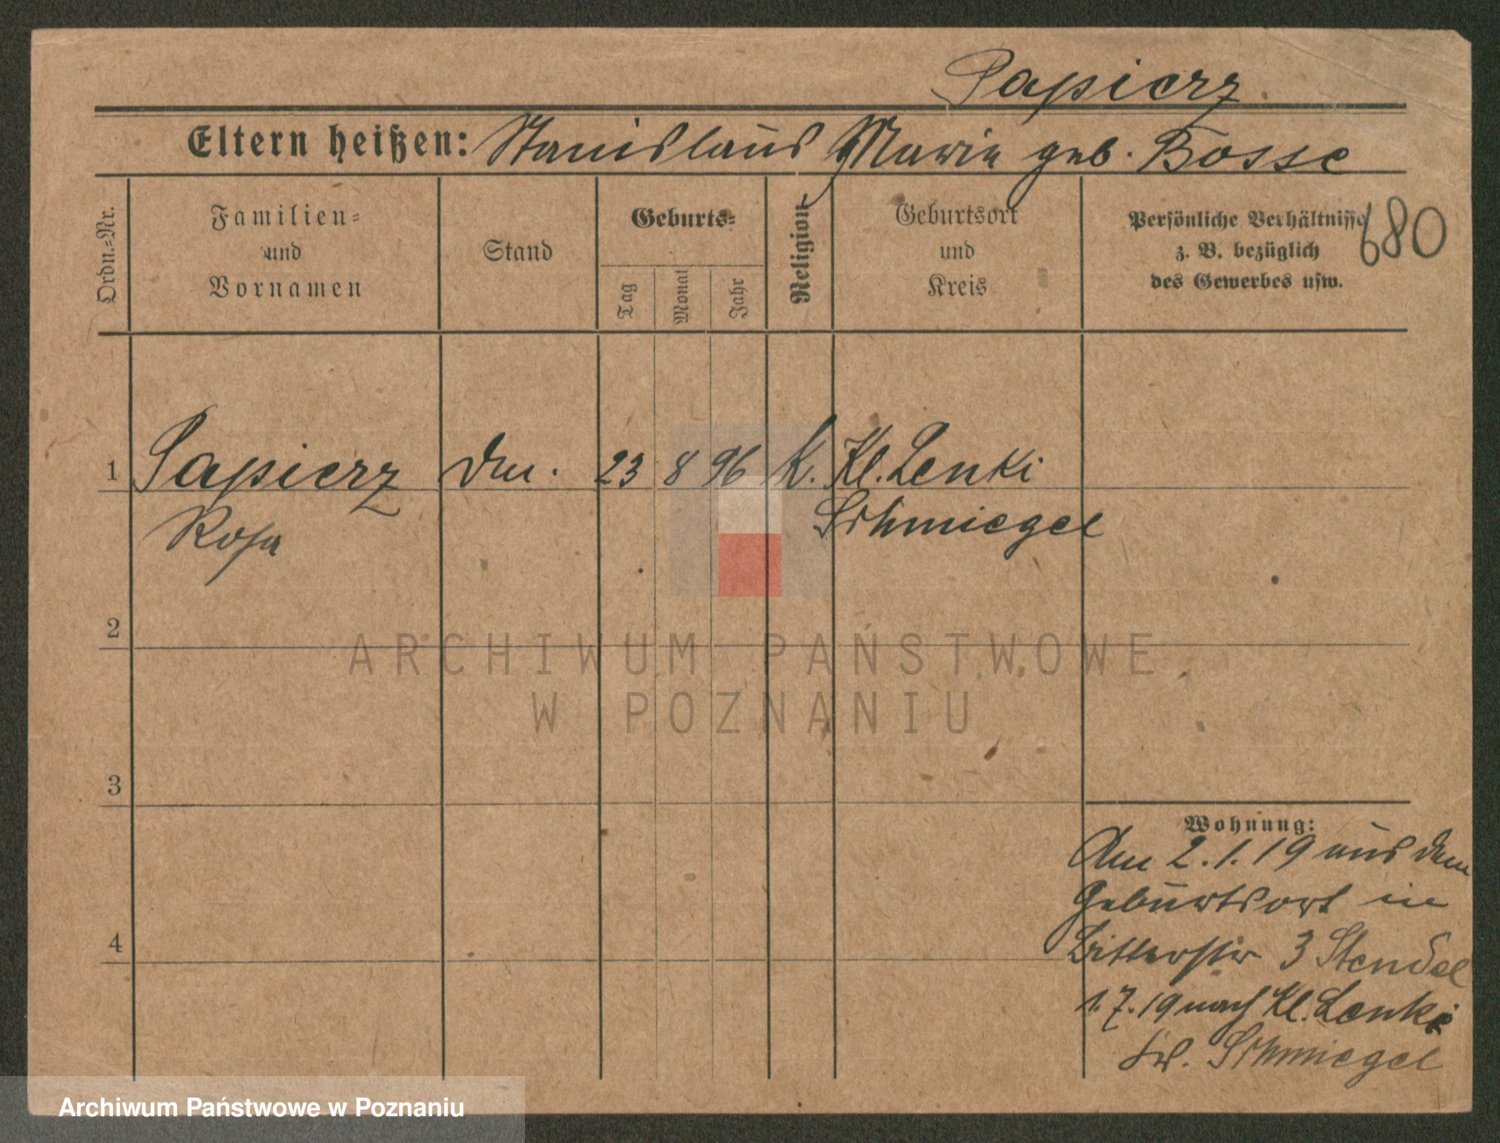 Papierz
Eltern heißen: Stanislaus Marie geb. Bosse
Ordn.=Nr.
Familien=
und
Vornamen
Stand
Geburts=
Tag
Monat
Jahr
Religion
Geburtsort
und
Kreis
Persönliche Verhältnisse
z. B. bezüglich
des Gewerbes usw.
680
1 Papierz 23 8 96 K. Kl. Lenki
Rosa Schmiegel
2
ARCHIWUM PAŃSTWOWE
W POZNANIU
3
Wohnung:
Am 2.1.19 aus dem
Geburtsort in
3 Stendel
1.7.19 nach Kl. Lenki
Schmiegel
4
Archiwum Państwowe w Poznaniu